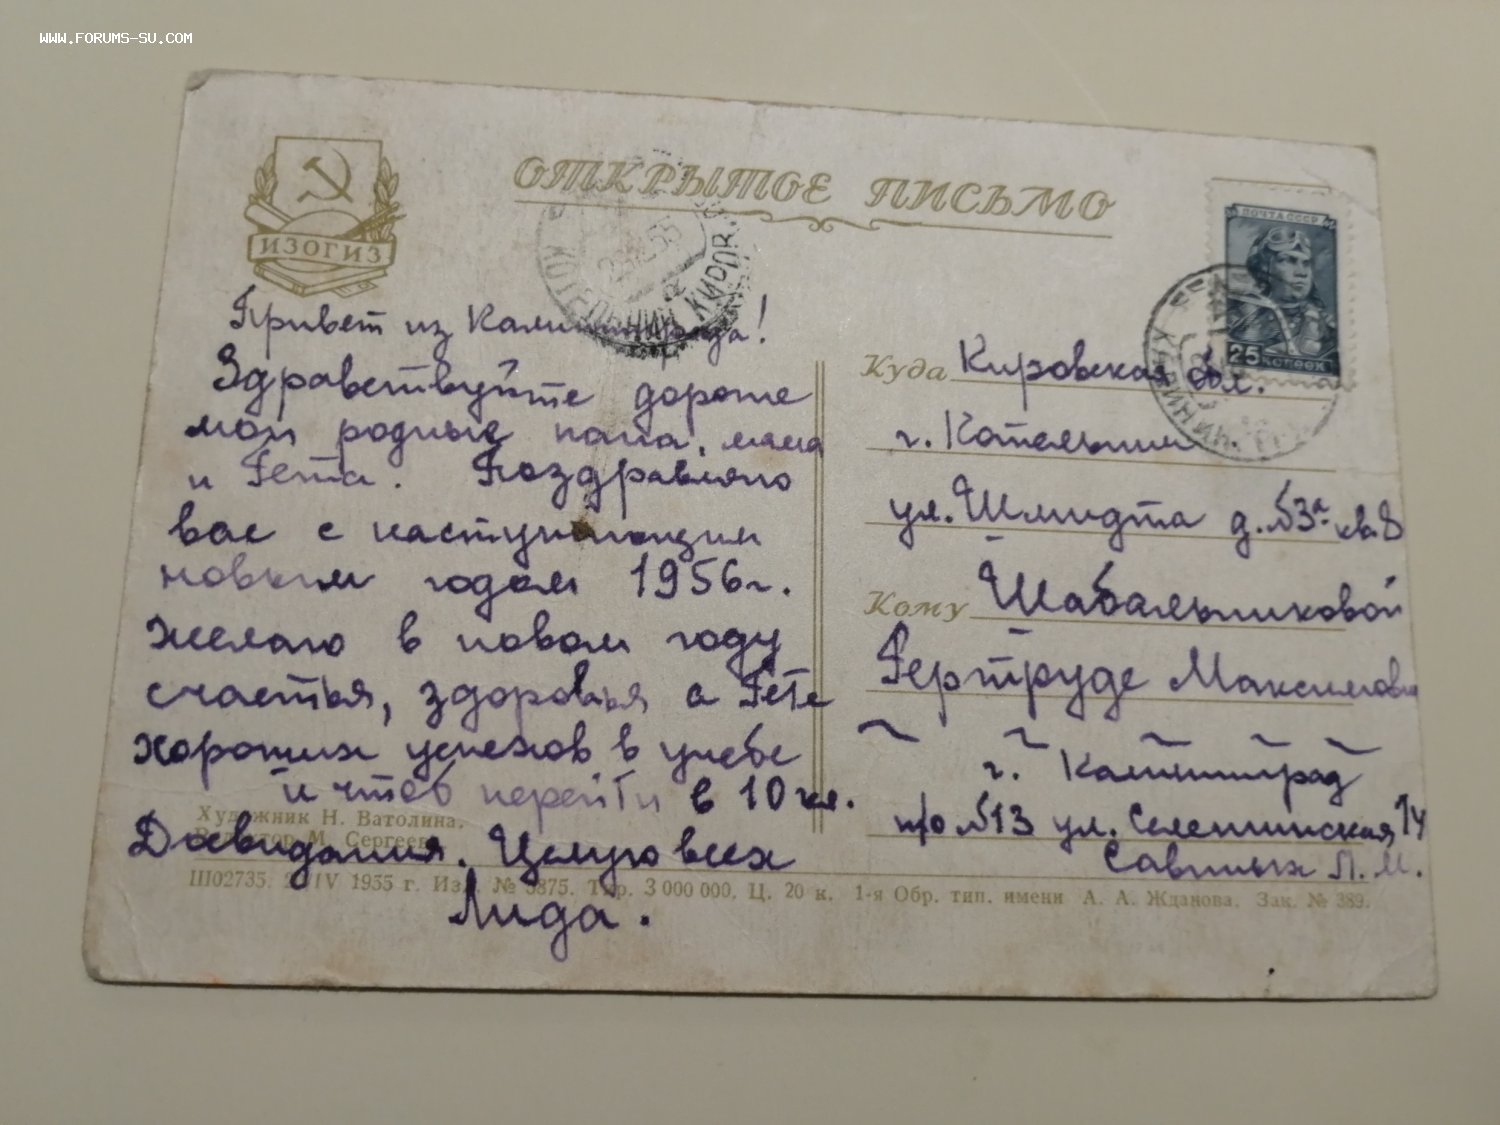 WWW.FORUMS-SU.COM
ОТКРЫТОЕ ПИСЬМО
ИЗОГИЗ
ПОЧТА СССР
25 КОПЕЕК
КОТЕЛЬНИЧ КИРОВ.
Привет из Калининграда!
Здравствуйте дорогие
мои родные папа, мама
и Гета. Поздравляю
вас с наступающим
новым годом 1956г.
Желаю в новом году
счастья, здоровья а Гете
хороших успехов в учебе
и чтоб перейти в 10 кл.
Досвидания. Целую всех
Лида.
Куда Кировская обл.
г. Котельнич
ул. Шмидта д. №3а кв 8
Кому Шабальниковой
Гертруде Максимовне
г. Калининград
п/о №13 ул. Селенгинская, 14
Савиных Л. М.
Художник Н. Ватолина.
Редактор М. Сергеев
Ш02735. IV 1955 г. Изд. № 3875. Тир. 3 000 000. Ц. 20 к. 1-я Обр. тип. имени А. А. Жданова. Зак. № 389.